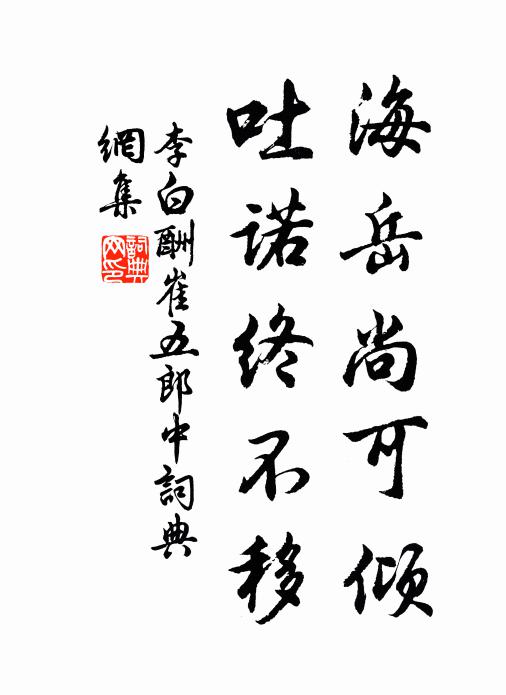 海岳尚可傾
吐諾終不移
李白酬崔五郎中詞典
網集
詞典
网印